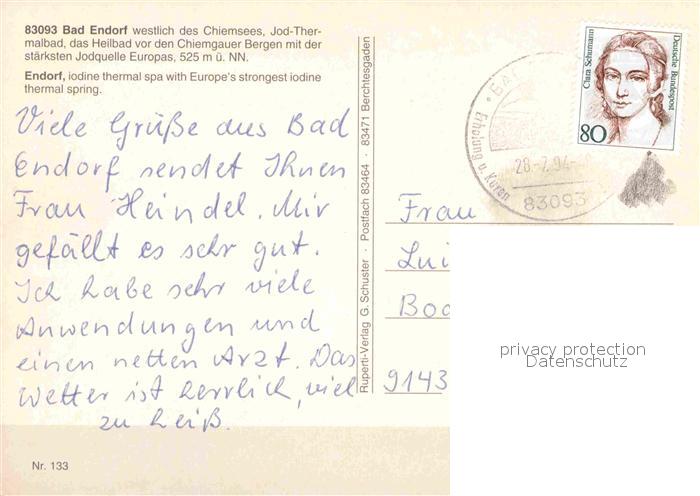 83093 Bad Endorf westlich des Chiemsees, Jod-Ther-
malbad, das Heilbad vor den Chiemgauer Bergen mit der
stärksten Jodquelle Europas, 525 m ü. NN.
Endorf, iodine thermal spa with Europe's strongest iodine
thermal spring.
Viele Grüße aus Bad
Endorf sendet Ihnen
Frau Heindel. Mir
gefällt es sehr gut.
Ich habe sehr viele
Anwendungen und
einen netten Arzt. Das
Wetter ist herrlich, viel
zu heiß.
Nr. 133
Ruperti-Verlag G. Schuster · Postfach 83464 · 83471 Berchtesgaden
Erholung u. Kuren
28.-7.94-
83093
Clara Schumann
Deutsche Bundespost
80
Frau
Lui
Boo
9143
privacy protection
Datenschutz